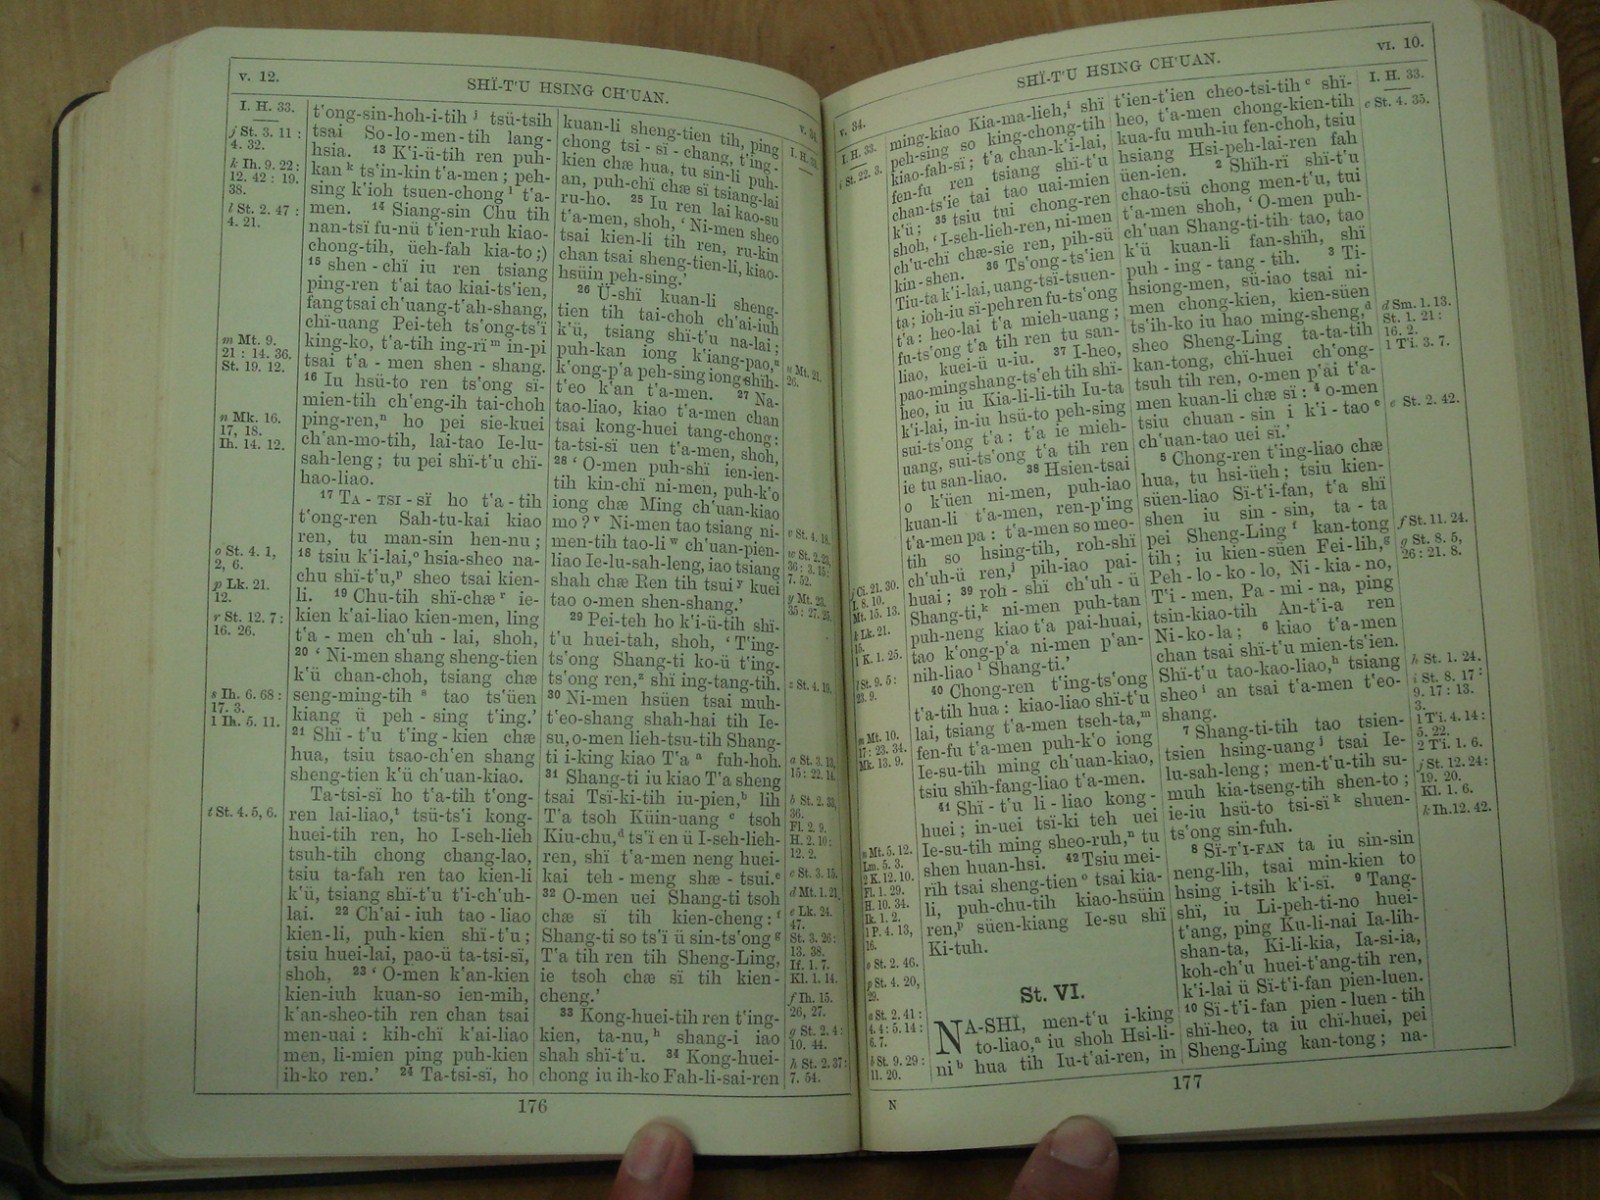 v. 12.
SHÏ-T'U HSING CH'UAN.
v. 34.
I. H. 33.
j St. 3. 11 :
4. 32.
k Ih. 9. 22 :
12. 42 : 19.
38.
l St. 2. 47 :
4. 21.
m Mt. 9.
21 : 14. 36.
St. 19. 12.
n Mk. 16.
17, 18.
Ih. 14. 12.
o St. 4. 1,
2, 6.
p Lk. 21.
12.
r St. 12. 7 :
16. 26.
s Ih. 6. 68 :
17. 3.
1 Ih. 5. 11.
t St. 4. 5, 6.
t'ong-sin-hoh-i-tih j tsü-tsih
tsai So-lo-men-tih lang-
hsia. 13 K'i-ü-tih ren puh-
kan k ts'in-kin t'a-men ; peh-
sing k'ioh tsuen-chong l t'a-
men. 14 Siang-sin Chu tih
nan-tsï fu-nü t'ien-ruh kiao-
chong-tih, üeh-fah kia-to ;)
15 shen-chï iu ren tsiang
ping-ren t'ai tao kiai-ts'ien,
fang tsai ch'uang-t'ah-shang,
chï-uang Pei-teh ts'ong-ts'ï
king-ko, t'a-tih ing-rï m in-pi
tsai t'a-men shen-shang.
16 Iu hsü-to ren ts'ong sï-
mien-tih ch'eng-ih tai-choh
ping-ren, n ho pei sie-kuei
ch'an-mo-tih, lai-tao Ie-lu-
sah-leng ; tu pei shï-t'u chï-
hao-liao.
17 TA-TSI-SÏ ho t'a-tih
t'ong-ren Sah-tu-kai kiao
ren, tu man-sin hen-nu ;
18 tsiu k'i-lai, o hsia-sheo na-
chu shï-t'u, p sheo tsai kien-
li. 19 Chu-tih shï-chæ r ie-
kien k'ai-liao kien-men, ling
t'a-men ch'uh-lai, shoh,
20 ‘ Ni-men shang sheng-tien
k'ü chan-choh, tsiang chæ
seng-ming-tih s tao ts'üen
kiang ü peh-sing t'ing.’
21 Shï-t'u t'ing-kien chæ
hua, tsiu tsao-ch'en shang
sheng-tien k'ü ch'uan-kiao.
Ta-tsi-sï ho t'a-tih t'ong-
ren lai-liao, t tsü-ts'i kong-
huei-tih ren, ho I-seh-lieh
tsuh-tih chong chang-lao,
tsiu ta-fah ren tao kien-li
k'ü, tsiang shï-t'u t'i-ch'uh-
lai. 22 Ch'ai-iuh tao-liao
kien-li, puh-kien shï-t'u ;
tsiu huei-lai, pao-ü ta-tsi-sï,
shoh, 23 ‘ O-men k'an-kien
kien-iuh kuan-so ien-mih,
k'an-sheo-tih ren chan tsai
men-uai : kih-chï k'ai-liao
men, li-mien ping puh-kien
ih-ko ren.’ 24 Ta-tsi-sï, ho
kuan-li sheng-tien tih, ping
chong tsi-sï-chang, t'ing-
kien chæ hua, tu sin-li puh-
an, puh-chï chæ sï tsiang-lai
ru-ho. 25 Iu ren lai kao-su
t'a-men, shoh, ‘ Ni-men sheo
tsai kien-li tih ren, ru-kin
chan tsai sheng-tien-li, kiao-
hsüin peh-sing.’
26 Ü-shï kuan-li sheng-
tien tih tai-choh ch'ai-iuh
k'ü, tsiang shï-t'u na-lai ;
puh-kan iong k'iang-pao, u
k'ong-p'a peh-sing iong shïh-
t'eo k'an t'a-men. 27 Na-
tao-liao, kiao t'a-men chan
tsai kong-huei tang-chong :
ta-tsi-sï uen t'a-men, shoh,
28 ‘ O-men puh-shï ien-ien-
tih kin-chï ni-men, puh-k'o
iong chæ Ming ch'uan-kiao
mo ? v Ni-men tao tsiang ni-
men-tih tao-li w ch'uan-pien-
liao Ie-lu-sah-leng, iao tsiang
shah chæ Ren tih tsui y kuei
tao o-men shen-shang.’
29 Pei-teh ho k'i-ü-tih shï-
t'u huei-tah, shoh, ‘ T'ing-
ts'ong Shang-ti ko-ü t'ing-
ts'ong ren, z shï ing-tang-tih.
30 Ni-men hsüen tsai muh-
t'eo-shang shah-hai tih Ie-
su, o-men lieh-tsu-tih Shang-
ti i-king kiao T'a a fuh-hoh.
31 Shang-ti iu kiao T'a sheng
tsai Tsï-ki-tih iu-pien, b lih
T'a tsoh Küin-uang c tsoh
Kiu-chu, d ts'ï en ü I-seh-lieh-
ren, shï t'a-men neng huei-
kai teh-meng shæ-tsui. e
32 O-men uei Shang-ti tsoh
chæ sï tih kien-cheng : f
Shang-ti so ts'ï ü sin-ts'ong g
T'a tih ren tih Sheng-Ling,
ie tsoh chæ sï tih kien-
cheng.’
33 Kong-huei-tih ren t'ing-
kien, ta-nu, h shang-i iao
shah shï-t'u. 34 Kong-huei-
chong iu ih-ko Fah-li-sai-ren
I. H. 33.
u Mt. 21.
26.
v St. 4. 18.
y Mt. 23.
35 : 27. 25.
z St. 4. 19.
a St. 3. 13,
15 : 22. 14.
b St. 2. 33,
36.
Fl. 2. 9.
H. 2. 10 :
12. 2.
c St. 3. 15.
d Mt. 1. 21.
e Lk. 24.
47.
St. 3. 26 :
13. 38.
If. 1. 7.
Kl. 1. 14.
f Ih. 15.
26, 27.
g St. 2. 4 :
10. 44.
h St. 2. 37 :
7. 54.
176
v. 34.
SHÏ-T'U HSING CH'UAN.
VI. 10.
I. H. 33.
i St. 22. 3.
j Ci. 21. 30.
I. 8. 10.
Mt. 15. 13.
k Lk. 21.
15.
1 K. 1. 25.
l St. 9. 5 :
23. 9.
m Mt. 10.
17 : 23. 34.
Mk. 13. 9.
n Mt. 5. 12.
Lm. 5. 3.
2 K. 12. 10.
Fl. 1. 29.
H. 10. 34.
Ik. 1. 2.
1 P. 4. 13,
16.
o St. 2. 46.
p St. 4. 20,
29.
a St. 2. 41 :
4. 4 : 5. 14 :
6. 7.
b St. 9. 29 :
11. 20.
ming-kiao Kia-ma-lieh, i shï
peh-sing so king-chong-tih
kiao-fah-sï ; t'a chan-k'i-lai,
fen-fu ren tsiang shï-t'u
chan-ts'ie tai tao uai-mien
k'ü ; 35 tsiu tui chong-ren
shoh, ‘ I-seh-lieh-ren, ni-men
ch'u-chï chæ-sie ren, pih-sü
kin-shen. 36 Ts'ong-ts'ien
Tiu-ta k'i-lai, uang-tsï-tsuen-
ta ; ioh-iu sï-peh ren fu-ts'ong
t'a : heo-lai t'a mieh-uang ;
fu-ts'ong t'a tih ren tu san-
liao, kuei-ü u-iu. 37 I-heo,
pao-ming shang-ts'eh tih shï-
heo, iu iu Kia-li-li-tih Iu-ta
k'i-lai, in-iu hsü-to peh-sing
sui-ts'ong t'a : t'a ie mieh-
uang, sui-ts'ong t'a tih ren
ie tu san-liao. 38 Hsien-tsai
o k'üen ni-men, puh-iao
kuan-li t'a-men, ren-p'ing
t'a-men pa : t'a-men so meo-
tih so hsing-tih, roh-shï
ch'uh-ü ren, j pih-iao pai-
huai ; 39 roh-shï ch'uh-ü
Shang-ti, k ni-men puh-tan
puh-neng kiao t'a pai-huai,
tao k'ong-p'a ni-men p'an-
nih-liao l Shang-ti.’
40 Chong-ren t'ing-ts'ong
t'a-tih hua : kiao-liao shï-t'u
lai, tsiang t'a-men tseh-ta, m
fen-fu t'a-men puh-k'o iong
Ie-su-tih ming ch'uan-kiao,
tsiu shïh-fang-liao t'a-men.
41 Shï-t'u li-liao kong-
huei ; in-uei tsï-ki teh uei
Ie-su-tih ming sheo-ruh, n tu
shen huan-hsi. 42 Tsiu mei-
rïh tsai sheng-tien o tsai kia-
li, puh-chu-tih kiao-hsüin
ren, p süen-kiang Ie-su shï
Ki-tuh.
St. VI.
NA-SHÏ, men-t'u i-king
to-liao, a iu shoh Hsi-li-
ni b hua tih Iu-t'ai-ren, in
t'ien-t'ien cheo-tsi-tih c shï-
heo, t'a-men chong-kien-tih
kua-fu muh-iu fen-choh, tsiu
hsiang Hsi-peh-lai-ren fah
üen-ien. 2 Shïh-rï shï-t'u
chao-tsü chong men-t'u, tui
t'a-men shoh, ‘ O-men puh-
ch'uan Shang-ti-tih tao, tao
k'ü kuan-li fan-shïh, shï
puh-ing-tang-tih. 3 Ti-
hsiong-men, sü-iao tsai ni-
men chong-kien, kien-süen
ts'ih-ko iu hao ming-sheng, d
sheo Sheng-Ling ta-ta-tih
kan-tong, chï-huei ch'ong-
tsuh tih ren, o-men p'ai t'a-
men kuan-li chæ sï : 4 o-men
tsiu chuan-sin i k'i-tao e
ch'uan-tao uei sï.’
5 Chong-ren t'ing-liao chæ
hua, tu hsi-üeh ; tsiu kien-
süen-liao Sï-t'i-fan, t'a shï
shen iu sin-sin, ta-ta
pei Sheng-Ling f kan-tong
tih ; iu kien-süen Fei-lih, g
Peh-lo-ko-lo, Ni-kia-no,
T'i-men, Pa-mi-na, ping
tsin-kiao-tih An-t'i-a ren
Ni-ko-la ; 6 kiao t'a-men
chan tsai shï-t'u mien-ts'ien.
Shï-t'u tao-kao-liao, h tsiang
sheo i an tsai t'a-men t'eo-
shang.
7 Shang-ti-tih tao tsien-
tsien hsing-uang j tsai Ie-
lu-sah-leng ; men-t'u-tih su-
muh kia-tseng-tih shen-to ;
ie-iu hsü-to tsi-sï k shuen-
ts'ong sin-fuh.
8 SÏ-T'I-FAN ta iu sin-sin
neng-lih, tsai min-kien to
hsing i-tsih k'i-sï. 9 Tang-
shï, iu Li-peh-ti-no huei-
t'ang, ping Ku-li-nai Ia-lih-
shan-ta, Ki-li-kia, Ia-si-ia,
koh-ch'u huei-t'ang-tih ren,
k'i-lai ü Sï-t'i-fan pien-luen.
10 Sï-t'i-fan pien-luen-tih
shï-heo, ta iu chï-huei, pei
Sheng-Ling kan-tong ; na-
I. H. 33.
c St. 4. 35.
d Sm. 1. 13.
St. 1. 21 :
16. 2.
1 Ti. 3. 7.
e St. 2. 42.
f St. 11. 24.
g St. 8. 5,
26 : 21. 8.
h St. 1. 24.
i St. 8. 17 :
9. 17 : 13.
3.
1 Ti. 4. 14 :
5. 22.
2 Ti. 1. 6.
j St. 12. 24 :
19. 20.
Kl. 1. 6.
k Ih. 12. 42.
N
177